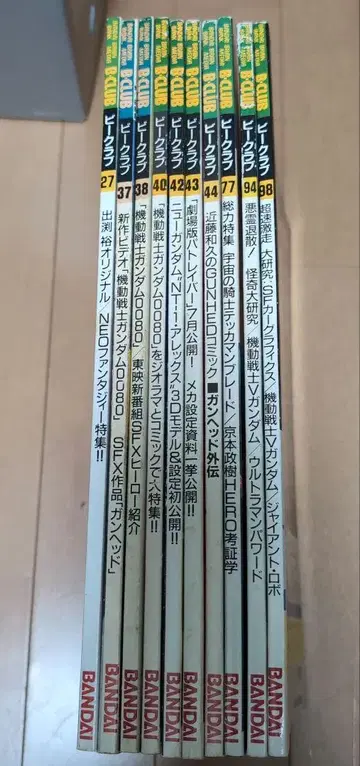 B-CLUB ビークラブ 27 出渕 裕オリジナル/NEOファンタジィー特集!! BANDAI
B-CLUB ビークラブ 37 新作ビデオ「機動戦士ガンダム0080」 SFX作品「ガンヘッド」 BANDAI
B-CLUB ビークラブ 38 「機動戦士ガンダム0080」/東映新番組SFXヒーロー紹介 BANDAI
B-CLUB ビークラブ 40 「機動戦士ガンダム0080」をジオラマとコミックで大特集!! BANDAI
B-CLUB ビークラブ 42 ニューガンダム"NT-1・アレックス"3Dモデル&設定初公開!! BANDAI
B-CLUB ビークラブ 43 「劇場版パトレイバー」7月公開! メカ設定資料一挙公開!! BANDAI
B-CLUB ビークラブ 44 近藤和久のGUNHEDコミック■ガンヘッド外伝 BANDAI
B-CLUB ビークラブ 77 総力特集 宇宙の騎士テッカマンブレード/京本政樹HERO考証学 BANDAI
B-CLUB ビークラブ 94 悪霊退散!/怪奇大研究/機動戦士Vガンダム/ウルトラマンパワード BANDAI
B-CLUB ビークラブ 98 超速激走 大研究/SFカーグラフィクス/機動戦士Vガンダム/ジャイアント・ロボ BANDAI